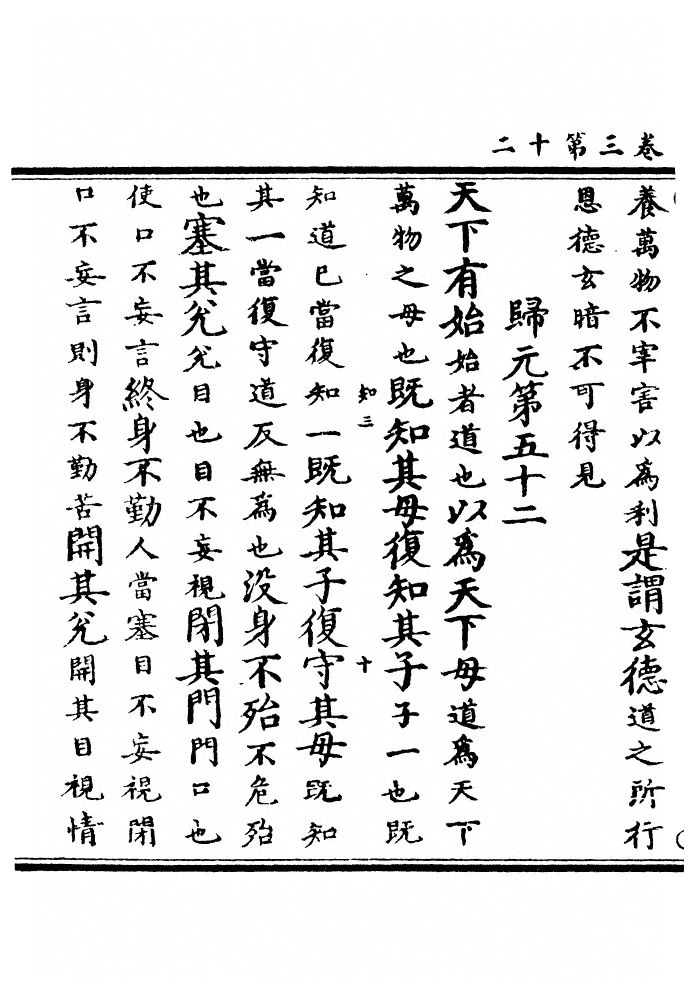 卷三第十二
養萬物不宰害以為利是謂玄德道之所行
恩德玄暗不可得見
歸元第五十二
天下有始始者道也以為天下母道為天下
萬物之母也既知其母復知其子子一也既
知道已當復知一既知其子復守其母既知
其一當復守道反無為也没身不殆不危殆
也塞其兊兊目也目不妄視閉其門門口也
使口不妄言終身不勤人當塞目不妄視閉
口不妄言則身不勤苦開其兊開其目視情
知三
十